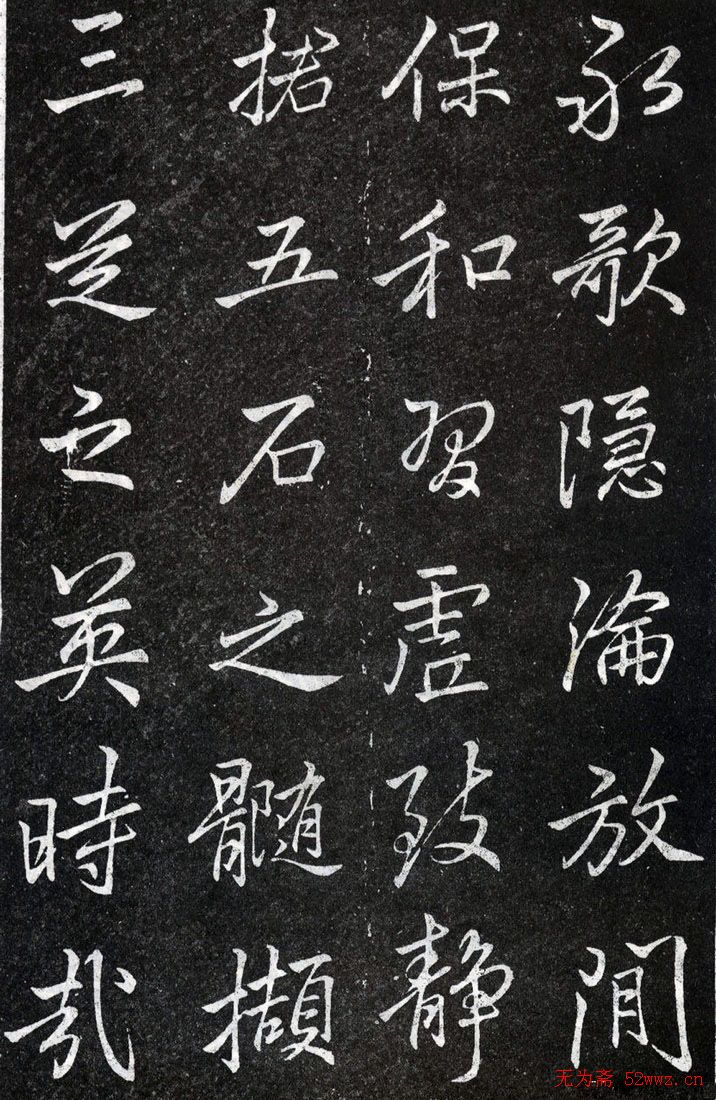 永歌隱淪放閒
保和習虛致靜
捃五石之髓擷
三芝之英時哉
无为斋 52wwz.cn